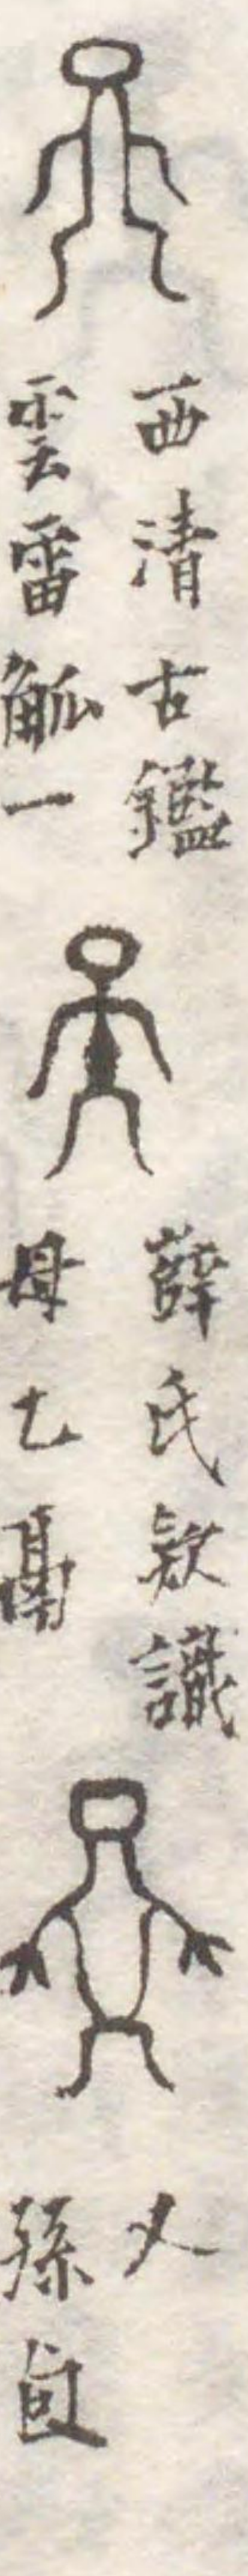 西清古鑑
雲雷觚一
薛氏款識
母乙鬲
又
孫卣